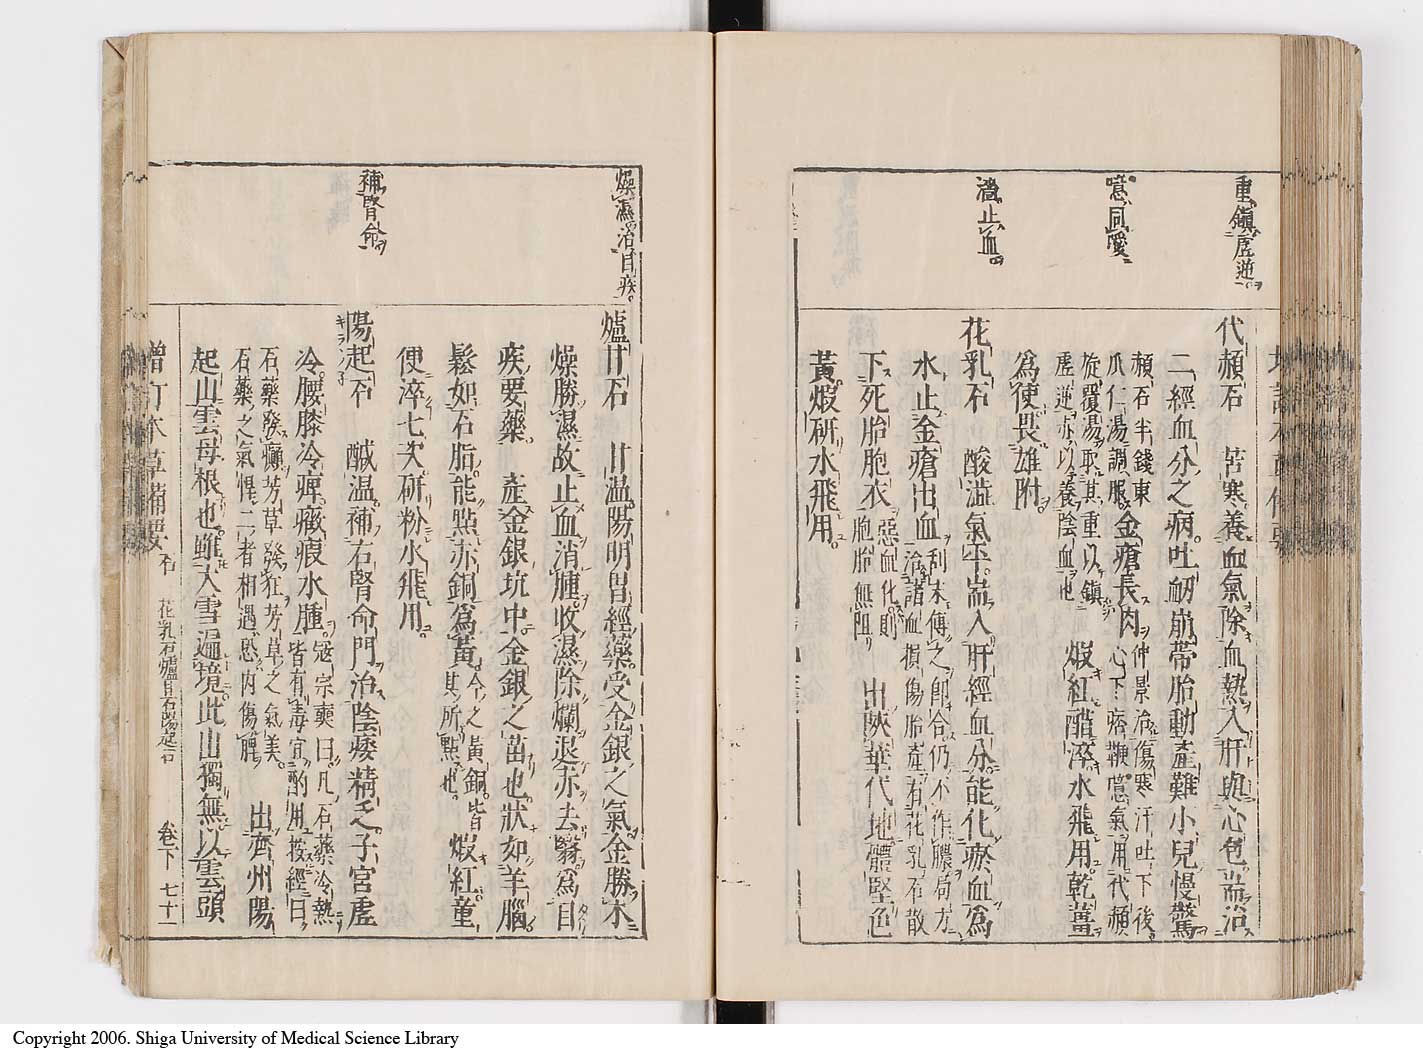 重鎮虛逆
噫同噯
濇止血
代赭石　苦寒養血氣除血熱入肝與心包耑治
二經血分之病吐衂崩帶胎動產難小兒慢驚
赭石半錢東
瓜仁湯調服
金瘡長肉
仲景治傷寒汗吐下後
心下痞鞕噫氣用代赭
旋覆湯取其重以鎮
虛逆赤以養陰血也
煆紅醋淬水飛用乾薑
爲使畏雄附
花乳石　酸濇氣平耑入肝經血分能化瘀血爲
水止金瘡出血
刮末傅之卽合仍不作膿局方
治諸血損傷胎產有花乳石散
下死胎胞衣
惡血化則
胞胎無阻
出陝華代地體堅色
黃煆研水飛用
燥濕治目疾
補腎命
爐甘石　甘溫陽明胃經藥受金銀之氣金勝木
燥勝濕故止血消腫收濕除爛退赤去翳爲目
疾要藥　產金銀坑中金銀之苗也狀如羊腦
鬆如石脂能點赤銅爲黃
今之黃銅皆
其所點也
煆紅童
便淬七次研粉水飛用
陽起石　鹹溫補右腎命門治陰痿精乏子宮虛
冷腰膝冷痺癥瘕水腫
寇宗奭曰凡石藥冷熱
皆有毒宜酌用按經曰
石藥發癲芳草發狂芳草之氣美
石藥之氣悍二者相遇恐內傷脾
出齊州陽
起山雲母根也雖大雪遍境此山獨無以雲頭
增訂本草備要　石　花乳石爐甘石陽起石　卷下　七十一
Copyright 2006. Shiga University of Medical Science Library